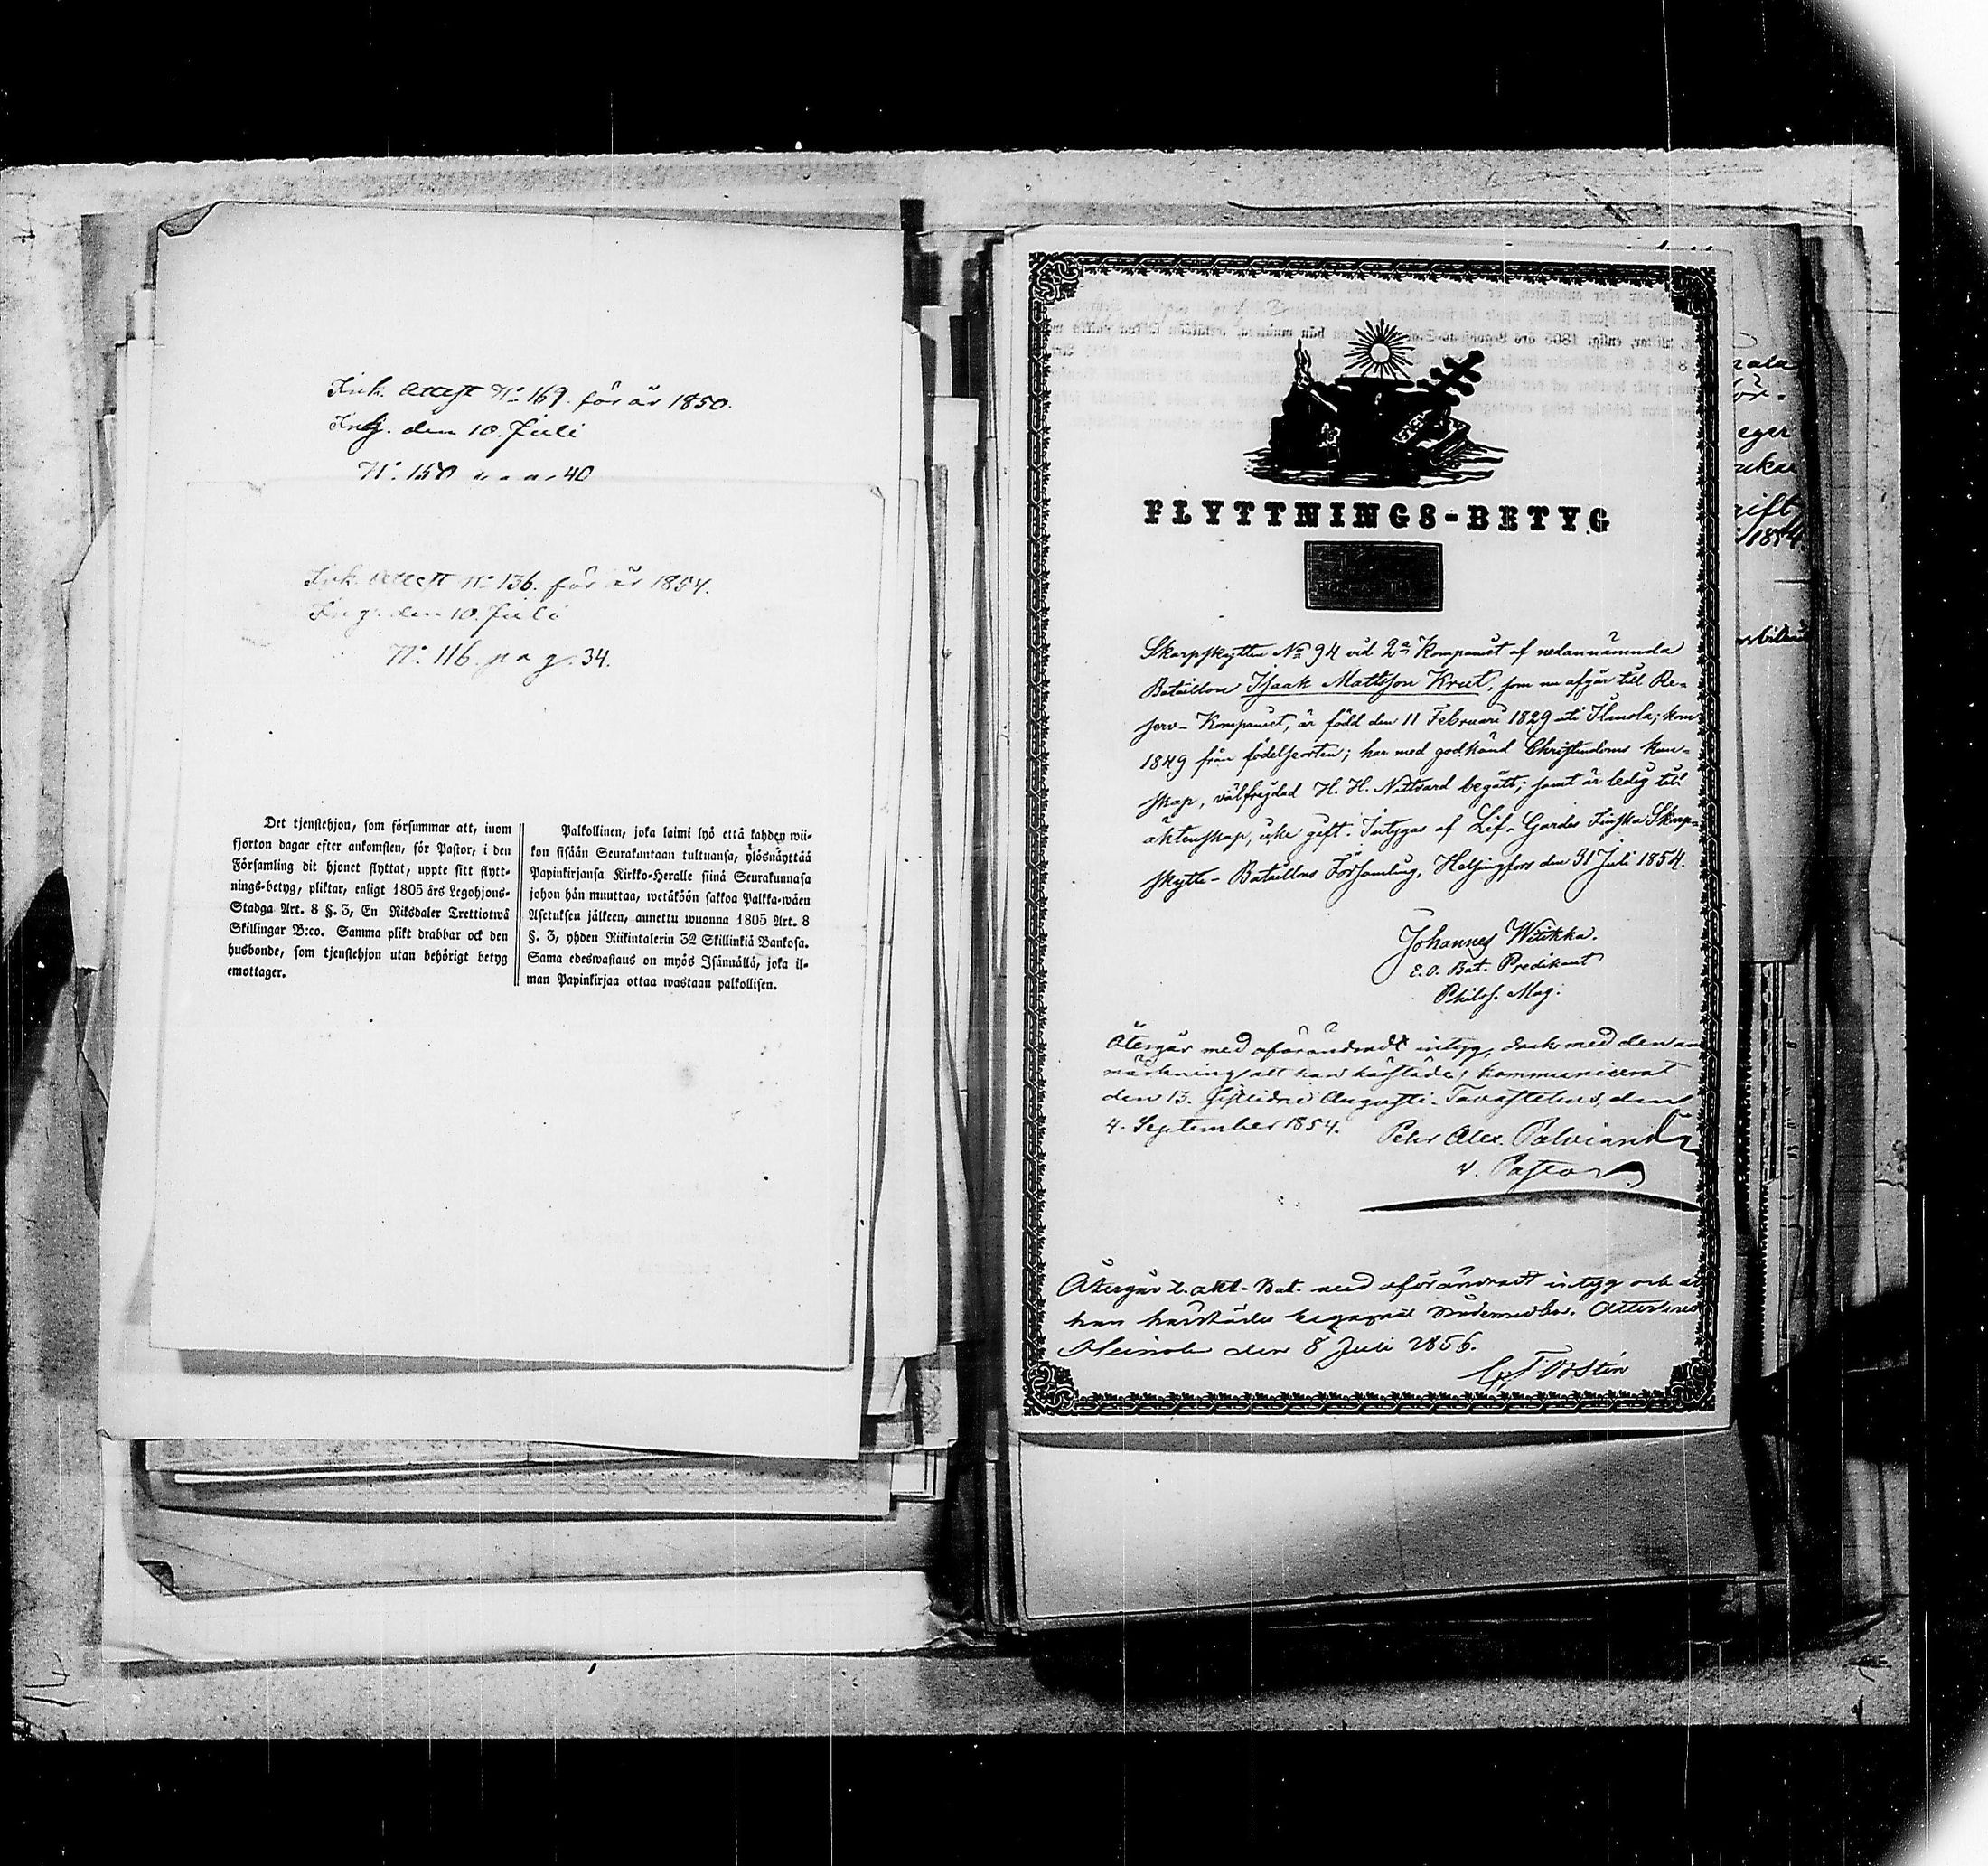 Ink. Attest No 169. för år 1850.
Ing. den 10. Juli
No. 150 40
Ink. Attest No 136. för år 1854.
Ing. den 10. Juli
No. 116. pag. 34.
Det tjenstehjon, som försummar att, inom
fjorton dagar efter ankomsten, för Pastor, i den
Församling dit hjonet flyttat, uppte sitt flytt-
nings-betyg, pliktar, enligt 1805 års Legohjons-
Stadga Art. 8 §. 3, En Riksdaler Trettiotwå
Skillingar B:co. Samma plikt drabbar ock den
husbonde, som tjenstehjon utan behörigt betyg
emottager.
Palkollinen, joka laimi lyö että kahden wii-
kon sisään Seurakuntaan tultuansa, ylösnäyttää
Papinkirjansa Kirkko-Heralle siinä Seurakunnasa
johon hän muuttaa, wetäköön sakkoa Palkka-wäen
Asetuksen jälkeen, annettu wuonna 1805 Art. 8
§. 3, yhden Riikintalerin 32 Skillinkiä Bankosa.
Sama edeswastaus on myös Isännällä, joka il-
man Papinkirjaa ottaa wastaan palkollisen.
FLYTTNINGS-BETYG
Skarpskytten No 94 vid 2a Kompaniet af nedannämnda
Bataillon Isaak Mattsson Krut, som nu afgår till Re-
serv-Kompaniet, är född den 11 Februari 1829 uti Ilmola; kom
1849 från födelseorten; har med godkänd Christendoms kun-
skap, välfrejdad H. H. Nattvard begått; samt är ledig till
äktenskap, icke gift. Intygas af Lif-Gardes Finska Skarp-
skytte-Bataillons Församling, Helsingfors den 31 Juli 1854.
Johannes Witikka.
E. O. Bat. Predikant
Philos. Mag.
Återgår med oförändradt intyg, dock med den an
märkning, att han härstädes kommunicerat
den 13. sistlidne Augusti. Tavastehus, den
4. September 1854. Pehr Alex.
v. Pastor
Återgår t. akt. Bat. med oförändradt intyg och at
han härstädes begagnat nådemedlen.
Heinola den 8 Juli 1856.
rala
ör.
eger
ift
1854.